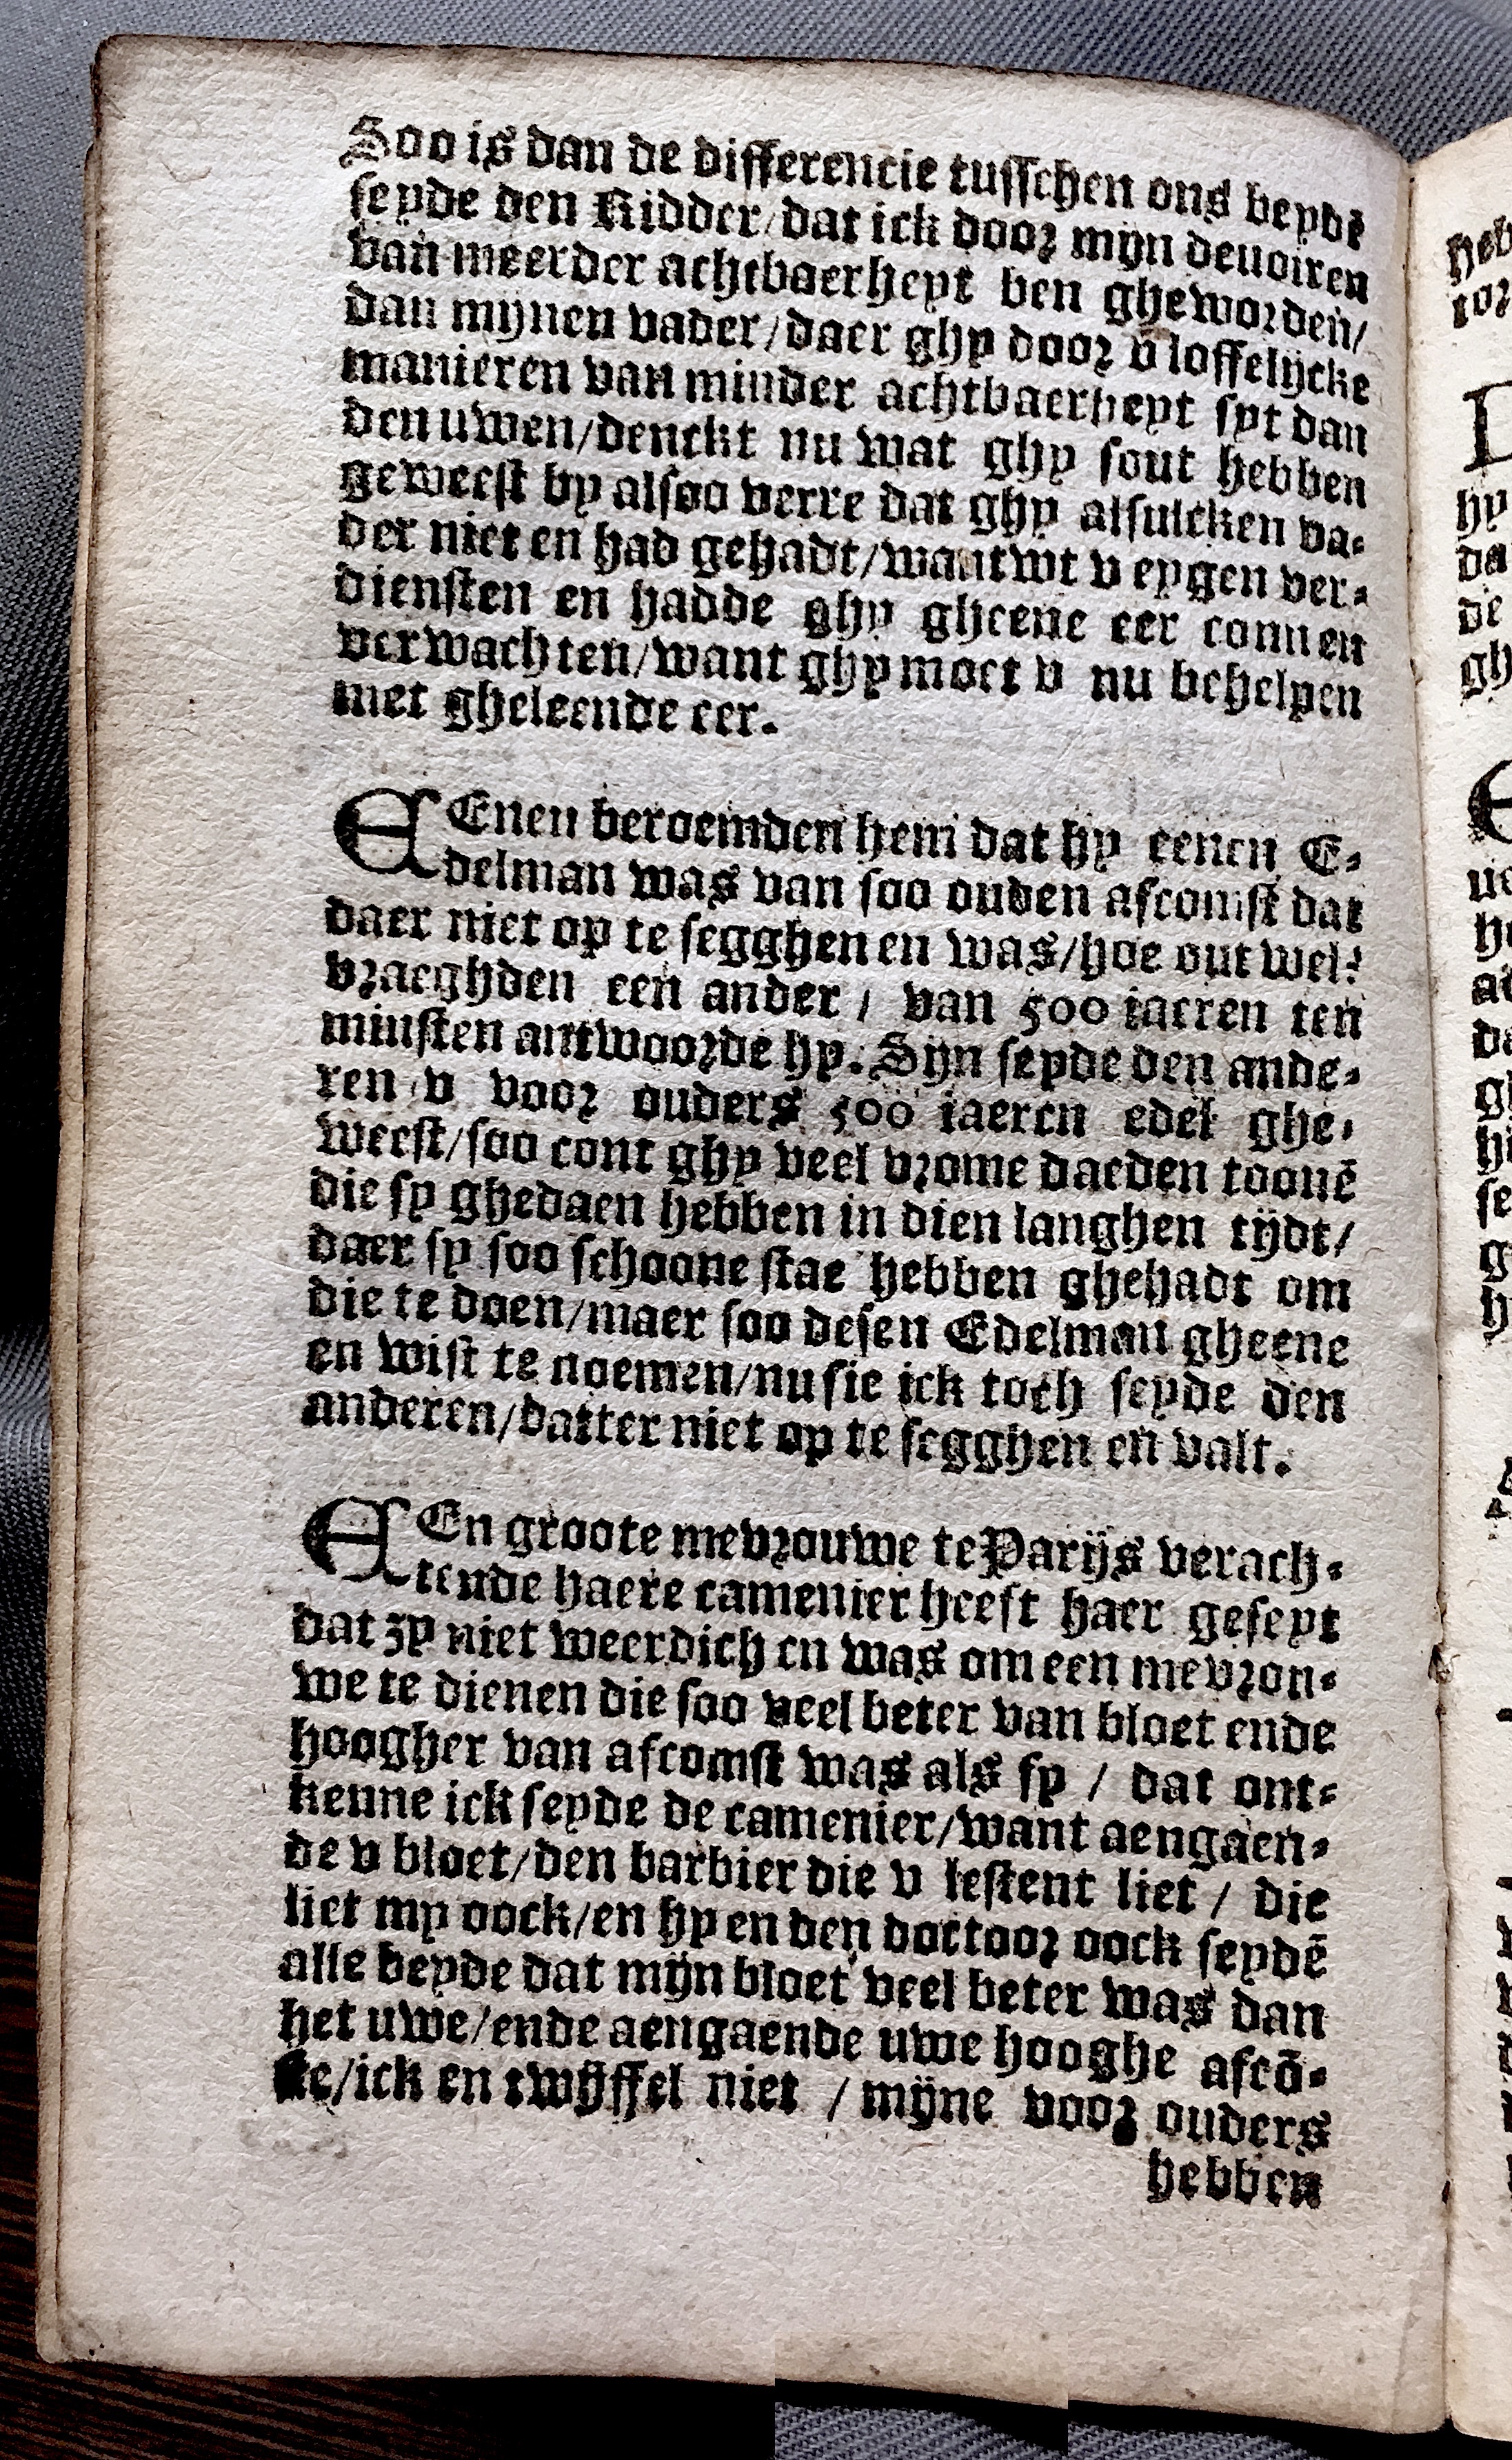 Soo is dan de differencie tusschen ons beydē
seyde den Ridder/dat ick door mijn deuoiren
van meerder achtbaerheyt ben gheworden/
dan mijnen vader/daer ghy door v loffelijcke
manieren van minder achtbaerheyt syt dan
den uwen/denckt nu wat ghy sout hebben
geweest by alsoo verre dat ghy alsulcken va-
der niet en had gehadt/want wt v eygen ver-
diensten en hadde ghy gheene eer connen
verwachten/want ghy moet v nu behelpen
met gheleende eer.
EEnen beroemden hem dat hy eenen E-
delman was van soo ouden afcomst dat
daer niet op te segghen en was/hoe out wel?
vraeghden een ander / van 500 iaeren ten
minsten antwoorde hy. Sijn seyde den ande-
ren v voor ouders 500 iaeren edel ghe-
weest/soo cont ghy veel vrome daeden toonē
die sy ghedaen hebben in dien langhen tijdt/
daer sy soo schoone stae hebben ghehadt om
die te doen/maer soo desen Edelman gheene
en wist te noemen/nu sie ick toch seyde den
anderen/datter niet op te segghen en valt.
EEn groote mevrouwe te Parijs verach-
tende haere camenier heeft haer geseyt
dat zy niet weerdich en was om een mevron-
we te dienen die soo veel beter van bloet ende
hoogher van afcomst was als sy / dat ont-
kenne ick seyde de camenier/want aengaen-
de v bloet/den barbier die v lestent liet / die
liet my oock/en hy en den doctoor oock seydē
alle beyde dat mijn bloet veel beter was dan
het uwe/ende aengaende uwe hooghe afcō-
ste/ick en twijffel niet / mijne voor ouders
hebben